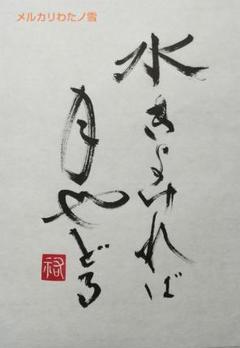 メルカリわたノ雪
水きよければ
月やどる